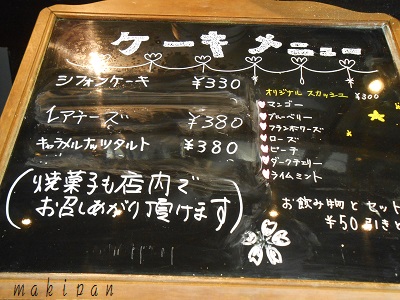 ケーキメニュー
シフォンケーキ ¥330
レアチーズ ¥380
キャラメルナッツタルト ¥380
(焼菓子も店内で
お召しあがり頂けます)
オリジナル スカッシュ ¥300
マンゴー
ブルーベリー
フランボワーズ
ローズ
ピーチ
ダークチェリー
ライムミント
お飲み物とセット
¥50引きと
makipan